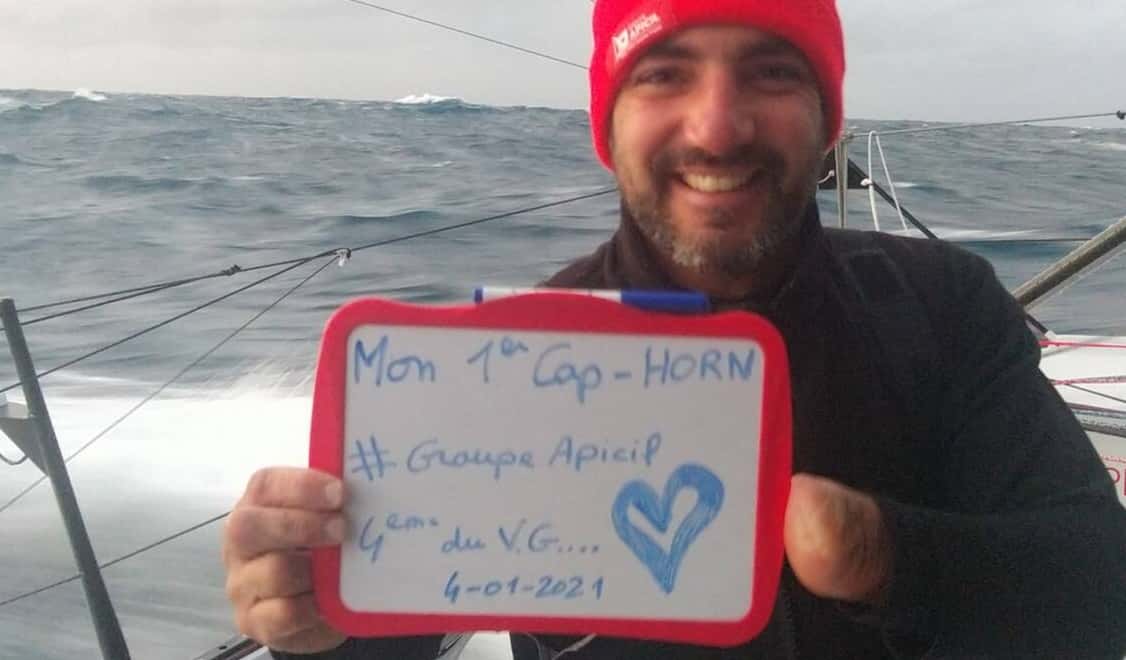 APICIL
Mon 1er Cap-HORN
# Groupe Apicil
4eme du V.G....
4-01-2021